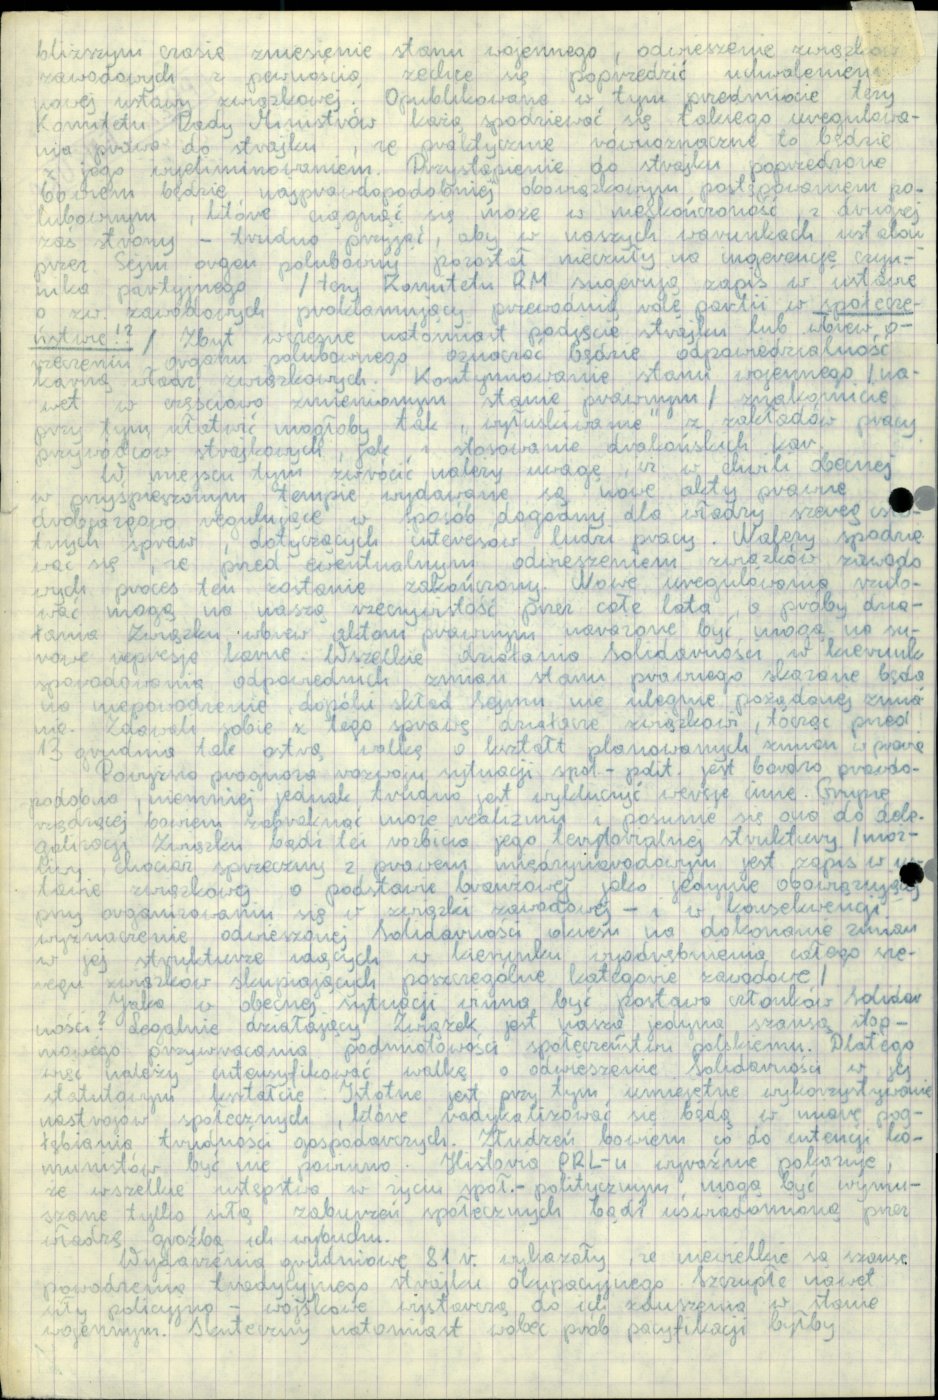 bliższym czasie zniesienie stanu wojennego, odwieszenie związków
zawodowych z pewnością zechce się poprzedzić uchwaleniem
nowej ustawy związkowej. Opublikowane w tym przedmiocie tezy
Komitetu Rady Ministrów każą spodziewać się takiego uregulowa-
nia prawa do strajku, że praktycznie równoznaczne to będzie
z jego wyeliminowaniem. Przystąpienie do strajku poprzedzone
bowiem będzie najprawdopodobniej obowiązkowym postępowaniem po-
lubownym, które ciągnąć się może w nieskończoność, z drugiej
zaś strony - trudno przyjąć, aby w naszych warunkach ustalony
przez Sejm organ polubowny pozostał nieczuły na ingerencję czyn-
nika partyjnego /tezy Komitetu RM sugerują zapis w ustawie
o zw. zawodowych proklamujący przewodnią rolę partii w społecze-
ństwie!?/ Zbyt wczesne natomiast podjęcie strajku lub wbrew o-
rzeczeniu organu polubownego oznaczać będzie odpowiedzialność
karną władz związkowych. Kontynuowanie stanu wojennego /na-
wet w częściowo zmienionym stanie prawnym/ znakomicie
przy tym ułatwić mogłoby tak "wyłuskiwanie" z zakładów pracy
przywódców strajkowych, jak i stosowanie drakońskich kar.
W miejscu tym zwrócić należy uwagę, iż w chwili obecnej
w przyspieszonym tempie wydawane są nowe akty prawne
drobiazgowo regulujące w sposób dogodny dla władzy szereg isto-
tnych spraw, dotyczących interesów ludzi pracy. Należy spodzie-
wać się, że przed ewentualnym odwieszeniem związków zawodo
wych proces ten zostanie zakończony. Nowe uregulowania rzuto-
wać mogą na naszą rzeczywistość przez całe lata, a próby dzia-
łania Związku wbrew aktom prawnym narażone być mogą na su-
rowe represje karne. Wszelkie działania Solidarności w kierunku
spowodowania odpowiednich zmian stanu prawnego skazane będą
na niepowodzenie, dopóki skład Sejmu nie ulegnie pożądanej zmia
nie. Zdawali sobie z tego sprawę działacze związkowi, tocząc przed
13 grudnia tak ostrą walkę o kształt planowanych zmian w prawie
Powyższa prognoza rozwoju sytuacji społ.-polit. jest bardzo prawdo-
podobna, niemniej jednak trudno jest wykluczyć wersje inne. Grupie
rządzącej bowiem zabraknąć może realizmu i posunie się ona do dele-
galizacji Związku bądź też rozbicia jego terytorialnej struktury /moż-
liwy, chociaż sprzeczny z prawem międzynarodowym jest zapis w us-
tawie związkowej o podstawie branżowej jako jedynie obowiązującej
przy organizowaniu się w związki zawodowe - i w konsekwencji
wyznaczenie odwieszonej Solidarności okresu na dokonanie zmian
w jej strukturze idących w kierunku wyodrębnienia całego sze-
regu związków skupiających poszczególne kategorie zawodowe/
Jaka w obecnej sytuacji winna być postawa członków Solidar
ności? Legalnie działający Związek jest naszą jedyną szansą stop-
niowego przywracania podmiotowości społeczeństwu polskiemu. Dlatego
więc należy intensyfikować walkę o odwieszenie Solidarności w jej
statutowym kształcie. Istotne jest przy tym umiejętne wykorzystywanie
nastrojów społecznych, które radykalizować się będą w miarę pog-
łębiania trudności gospodarczych. Złudzeń bowiem co do intencji ko-
munistów być nie powinno. Historia PRL-u wyraźnie pokazuje,
że wszelkie ustępstwa w życiu społ.-politycznym mogą być wymu-
szane tylko siłą zaburzeń społecznych bądź uświadomioną przez
władzę groźbą ich wybuchu.
Wydarzenia grudniowe 81 r. wykazały, że niewielkie są szanse
powodzenia tradycyjnego strajku okupacyjnego. Szczupłe nawet
siły policyjno - wojskowe wystarczą do ich zduszenia w stanie
wojennym. Skuteczny natomiast wobec prób pacyfikacji byłby